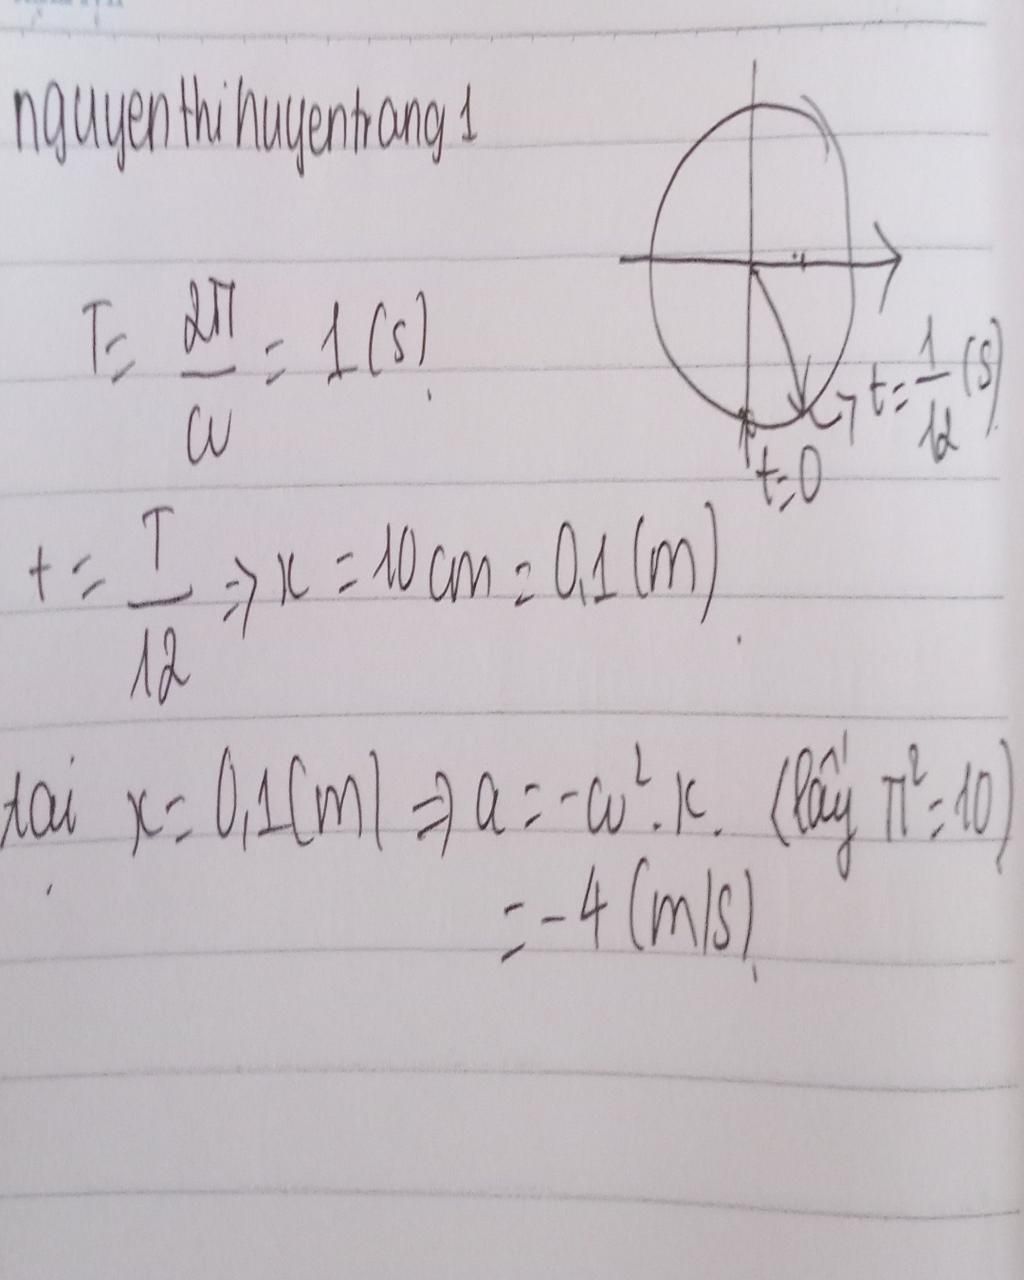 nguyenthihuyentrang1
T = 2π/ω = 1 (s).
t = 1/12 (s)
t=0
t = T/12 ⇒ x = 10 cm = 0,1 (m).
tại x = 0,1 (m) ⇒ a = -ω².x. (lấy π² = 10)
= -4 (m/s).